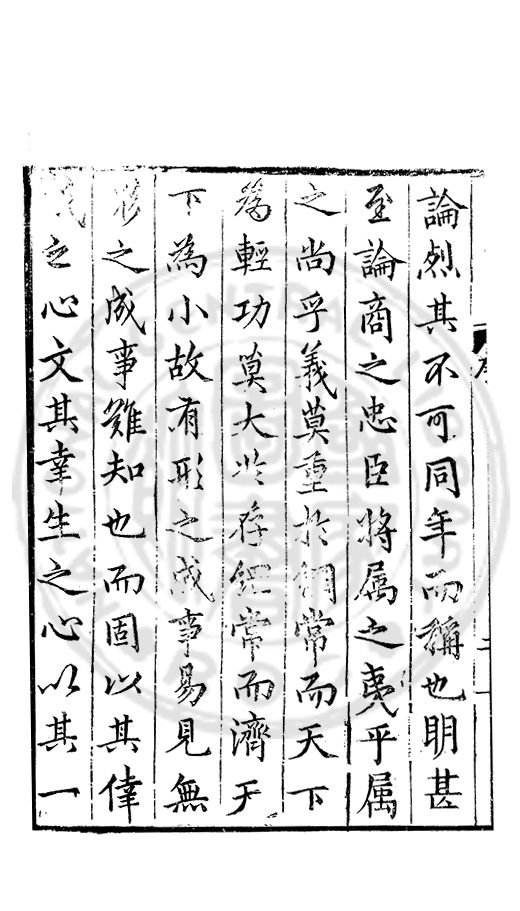 論烈其不可同年而稱也明甚
至論商之忠臣將属之夷乎属
之尚乎義莫重於綱常而天下
為輕功莫大於存綱常而濟天
下為小故有形之成事易見無
形之成事難知也而固以其倖
成之心文其幸生之心以其一